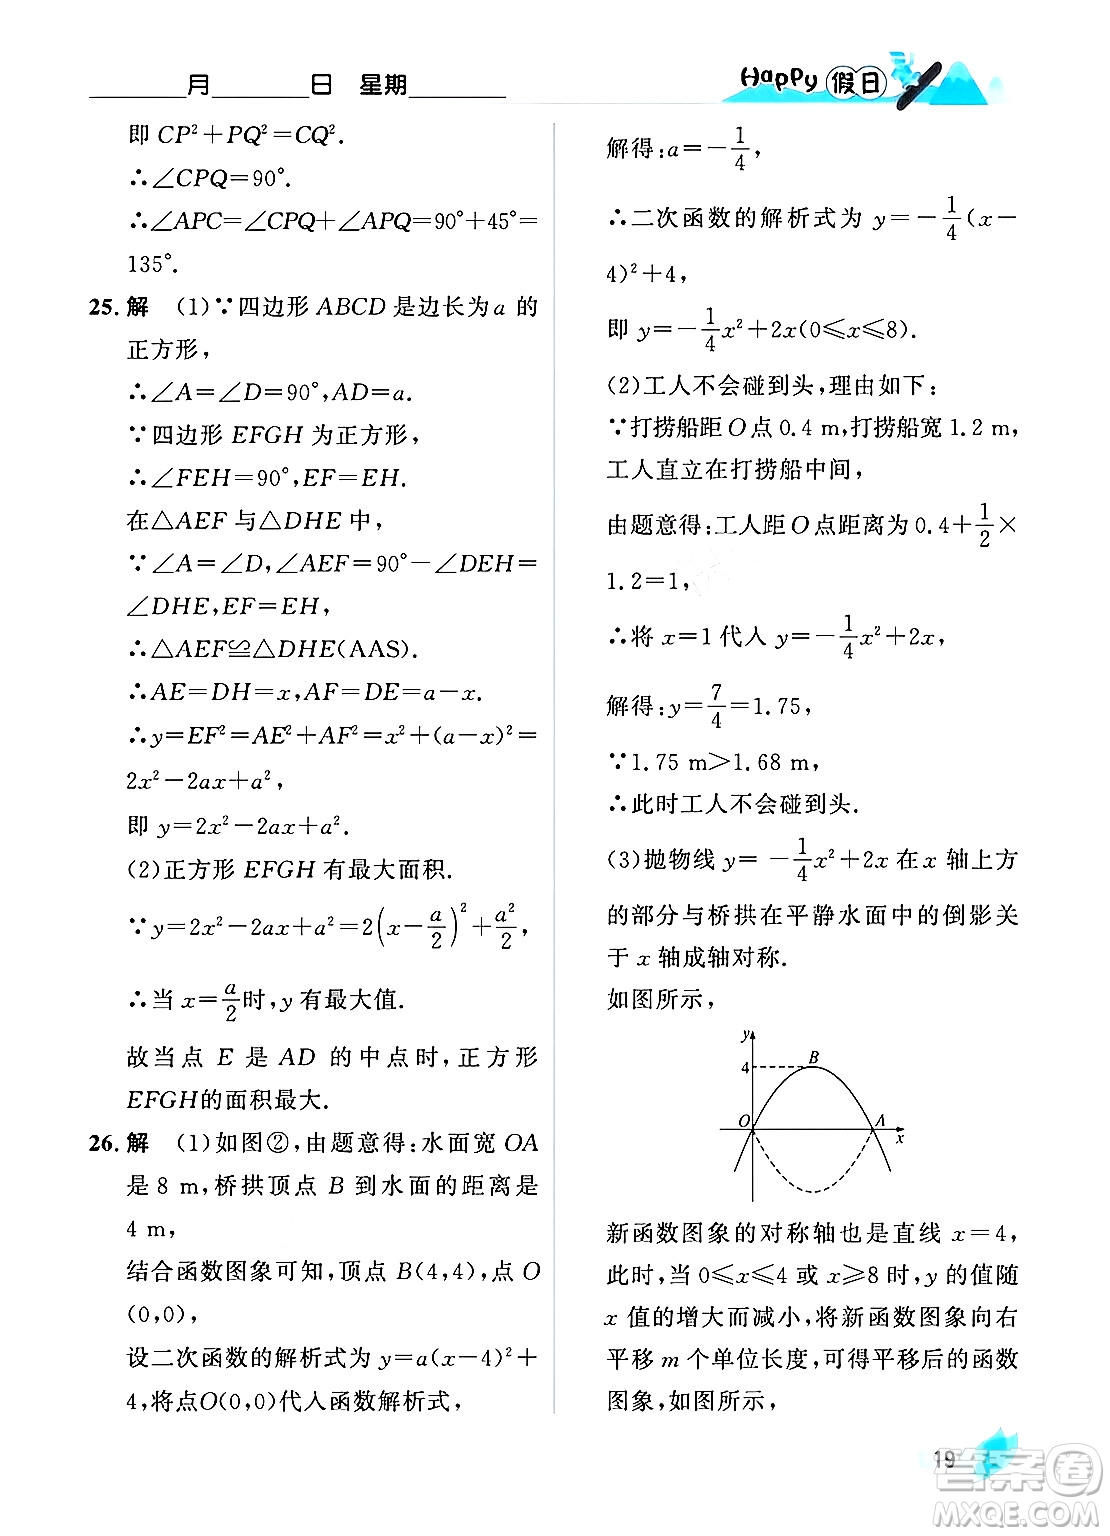 ______月______日 星期______
Happy 假日
即 CP²+PQ²=CQ².
∴∠CPQ=90°.
∴∠APC=∠CPQ+∠APQ=90°+45°=
135°.
25. 解 (1)∵四边形 ABCD 是边长为 a 的
正方形，
∴∠A=∠D=90°,AD=a.
∵四边形 EFGH 为正方形，
∴∠FEH=90°,EF=EH.
在△AEF 与△DHE 中，
∵∠A=∠D,∠AEF=90°-∠DEH=
∠DHE,EF=EH,
∴△AEF≌△DHE(AAS).
∴AE=DH=x,AF=DE=a-x.
∴y=EF²=AE²+AF²=x²+(a-x)²=
2x²-2ax+a²,
即 y=2x²-2ax+a².
(2)正方形 EFGH 有最大面积.
∵y=2x²-2ax+a²=2(x-a/2)²+a²/2,
∴当 x=a/2时,y 有最大值.
故当点 E 是 AD 的中点时,正方形
EFGH的面积最大.
26. 解 (1)如图②,由题意得:水面宽 OA
是 8 m,桥拱顶点 B 到水面的距离是
4 m,
结合函数图象可知,顶点 B(4,4),点 O
(0,0),
设二次函数的解析式为 y=a(x-4)²+
4,将点O(0,0)代入函数解析式,
解得:a=-1/4,
∴二次函数的解析式为 y=-1/4(x-
4)²+4,
即 y=-1/4x²+2x(0≤x≤8).
(2)工人不会碰到头,理由如下:
∵打捞船距 O 点 0.4 m,打捞船宽 1.2 m,
工人直立在打捞船中间,
由题意得:工人距 O 点距离为 0.4+1/2×
1.2=1,
∴将 x=1 代入 y=-1/4x²+2x,
解得:y=7/4=1.75,
∵1.75 m>1.68 m,
∴此时工人不会碰到头.
(3)抛物线 y=-1/4x²+2x 在 x 轴上方
的部分与桥拱在平静水面中的倒影关
于 x 轴成轴对称.
如图所示,
y
4
B
O
A
x
新函数图象的对称轴也是直线 x=4,
此时,当 0≤x≤4 或 x≥8 时,y 的值随
x 值的增大而减小,将新函数图象向右
平移 m 个单位长度,可得平移后的函数
图象,如图所示,
19
答案圈
MXQE.COM